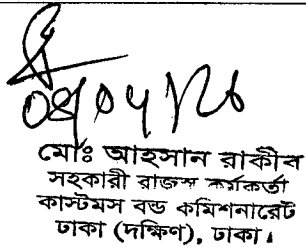 মোঃ আহসান রাকীব
সহকারী রাজস্ব কর্মকর্তা
কাস্টমস বন্ড কমিশনারেট
ঢাকা (দক্ষিণ), ঢাকা।